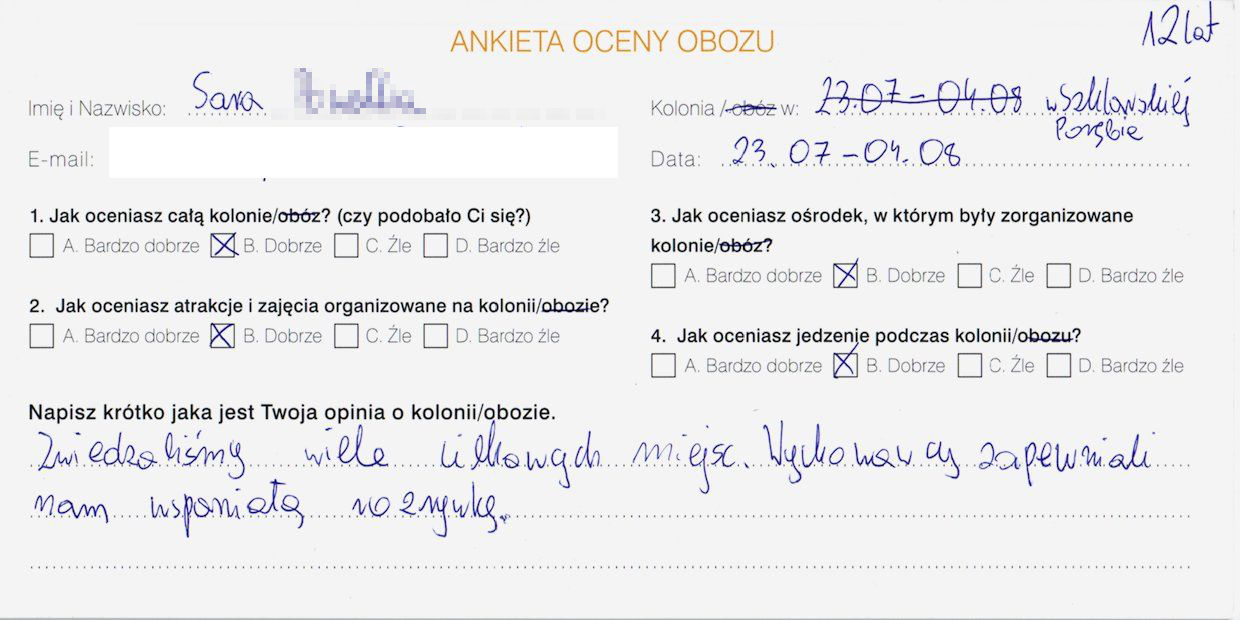 12 lat
ANKIETA OCENY OBOZU
Imię i Nazwisko: Sara
Kolonia / obóz w: 23.07 - 04.08 w Szklarskiej
Porębie
E-mail:
Data: 23.07 - 04.08
1. Jak oceniasz całą kolonie/obóz? (czy podobało Ci się?)
A. Bardzo dobrze B. Dobrze C. Źle D. Bardzo źle
2. Jak oceniasz atrakcje i zajęcia organizowane na kolonii/obozie?
A. Bardzo dobrze B. Dobrze C. Źle D. Bardzo źle
3. Jak oceniasz ośrodek, w którym były zorganizowane
kolonie/obóz?
A. Bardzo dobrze B. Dobrze C. Źle D. Bardzo źle
4. Jak oceniasz jedzenie podczas kolonii/obozu?
A. Bardzo dobrze B. Dobrze C. Źle D. Bardzo źle
Napisz krótko jaka jest Twoja opinia o kolonii/obozie.
Zwiedzaliśmy wiele ciekawych miejsc. Wychowawcy zapewniali
nam wspaniałą rozrywkę.